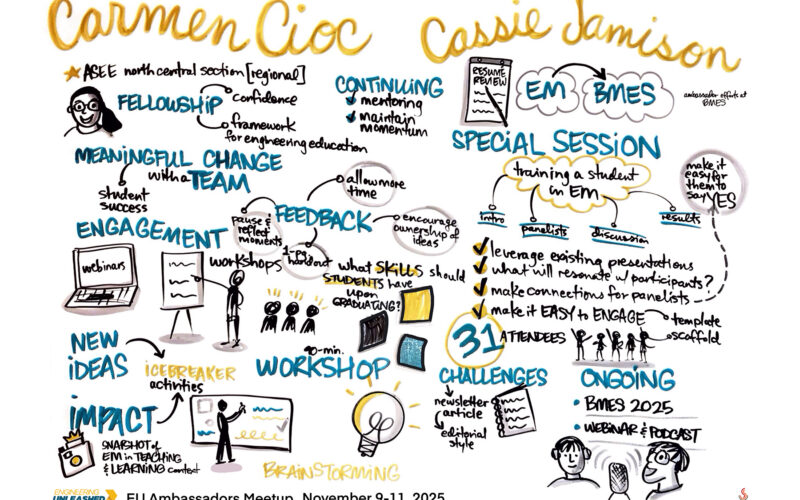 Carmen Cioc
ASEE north central section [regional]
FELLOWSHIP
confidence
framework
for engineering education
CONTINUING
mentoring
maintain
momentum
MEANINGFUL CHANGE
with a TEAM
student
success
FEEDBACK
allow more
time
encourage
ownership of
ideas
pause &
reflect
moments
1-pg
handout
ENGAGEMENT
webinars
workshops
what SKILLS should
STUDENTS have
upon
GRADUATING?
NEW
IDEAS
ICEBREAKER
activities
90-min.
WORKSHOP
IMPACT
SNAPSHOT of
EM in TEACHING
& LEARNING context
BRAINSTORMING
Cassie Jamison
RESUME
REVIEW
EM
BMES
ambassador efforts at
BMES
SPECIAL SESSION
training a student
in EM
make it
easy for
them to
say YES
intro
panelists
discussion
results
leverage existing presentations
what will resonate w/ participants?
make connections for panelists
make it EASY to ENGAGE
template
scaffold
31
ATTENDEES
CHALLENGES
newsletter
article
editorial
style
ONGOING
• BMES 2025
• WEBINAR & PODCAST
ENGINEERING
UNLEASHED
EU Ambassadors Meetup, November 9-11, 2025